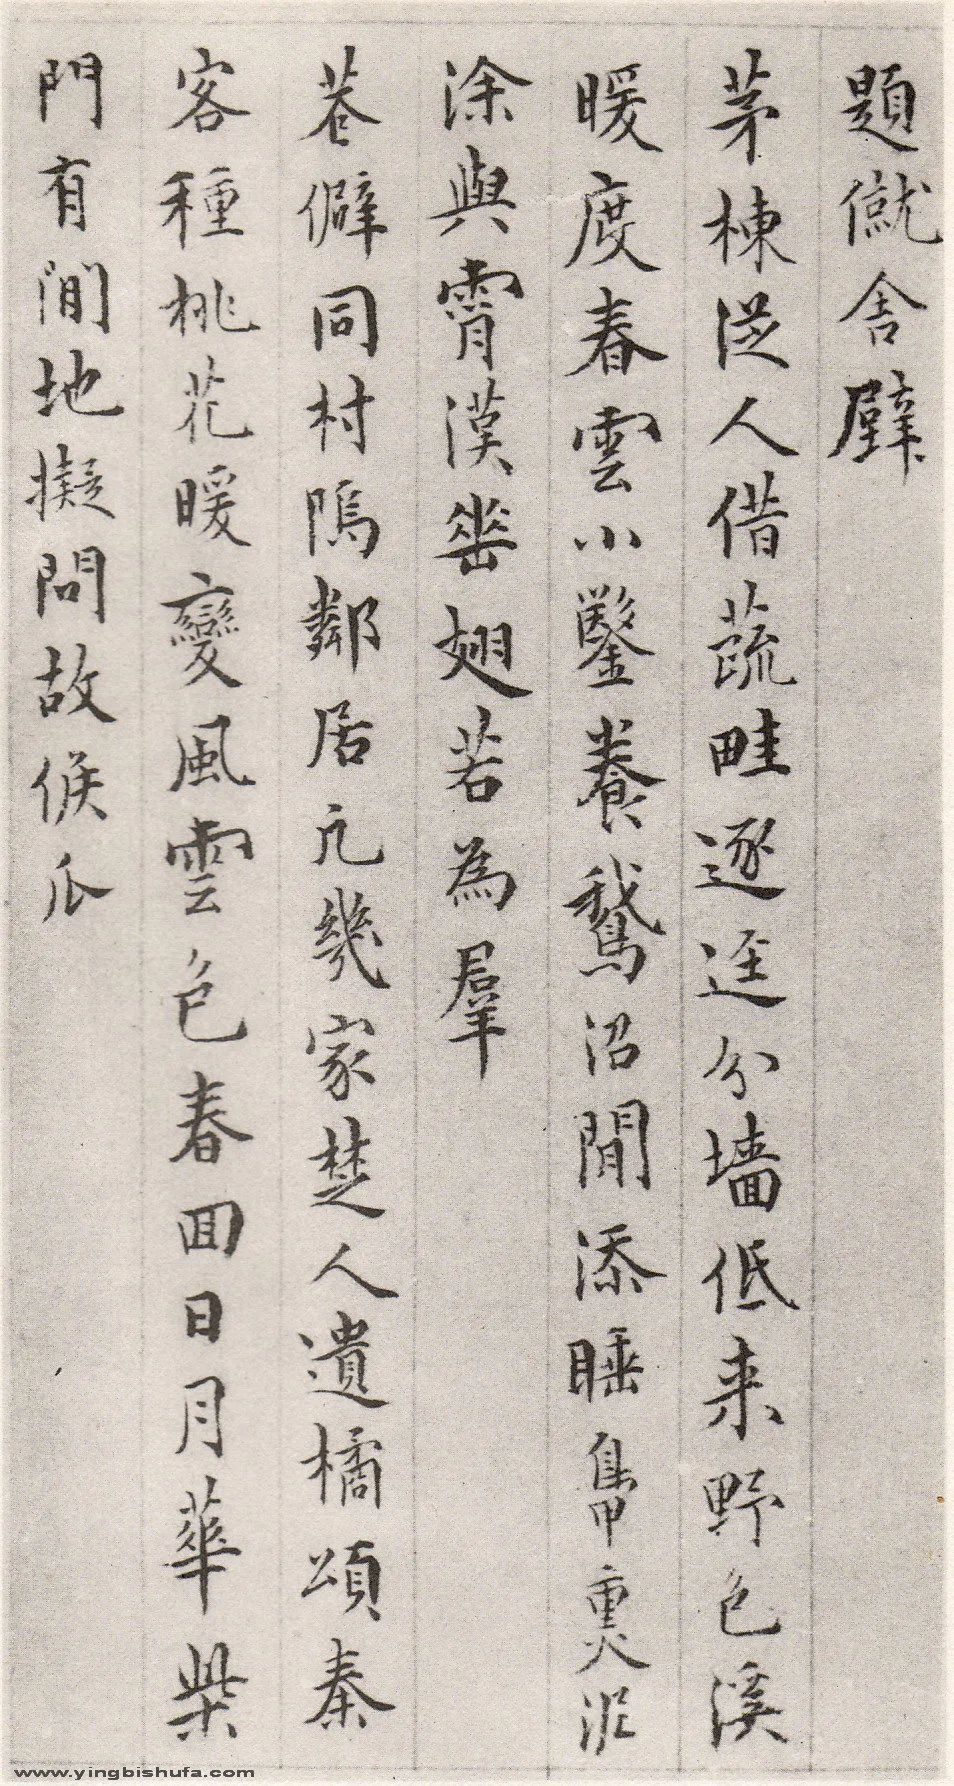 題僦舍壁
茅棟從人借蔬畦逐迳分墻低来野色溪
暖度春雲小鑿養鵝沼閒添睡鴨熏泥
涂與霄漢垂翅若為羣
巷僻同村隖鄰居凢幾家楚人遺橘頌秦
客種桃花暖變風雲色春回日月華柴
門有閒地擬問故候瓜
www.yingbishufa.com